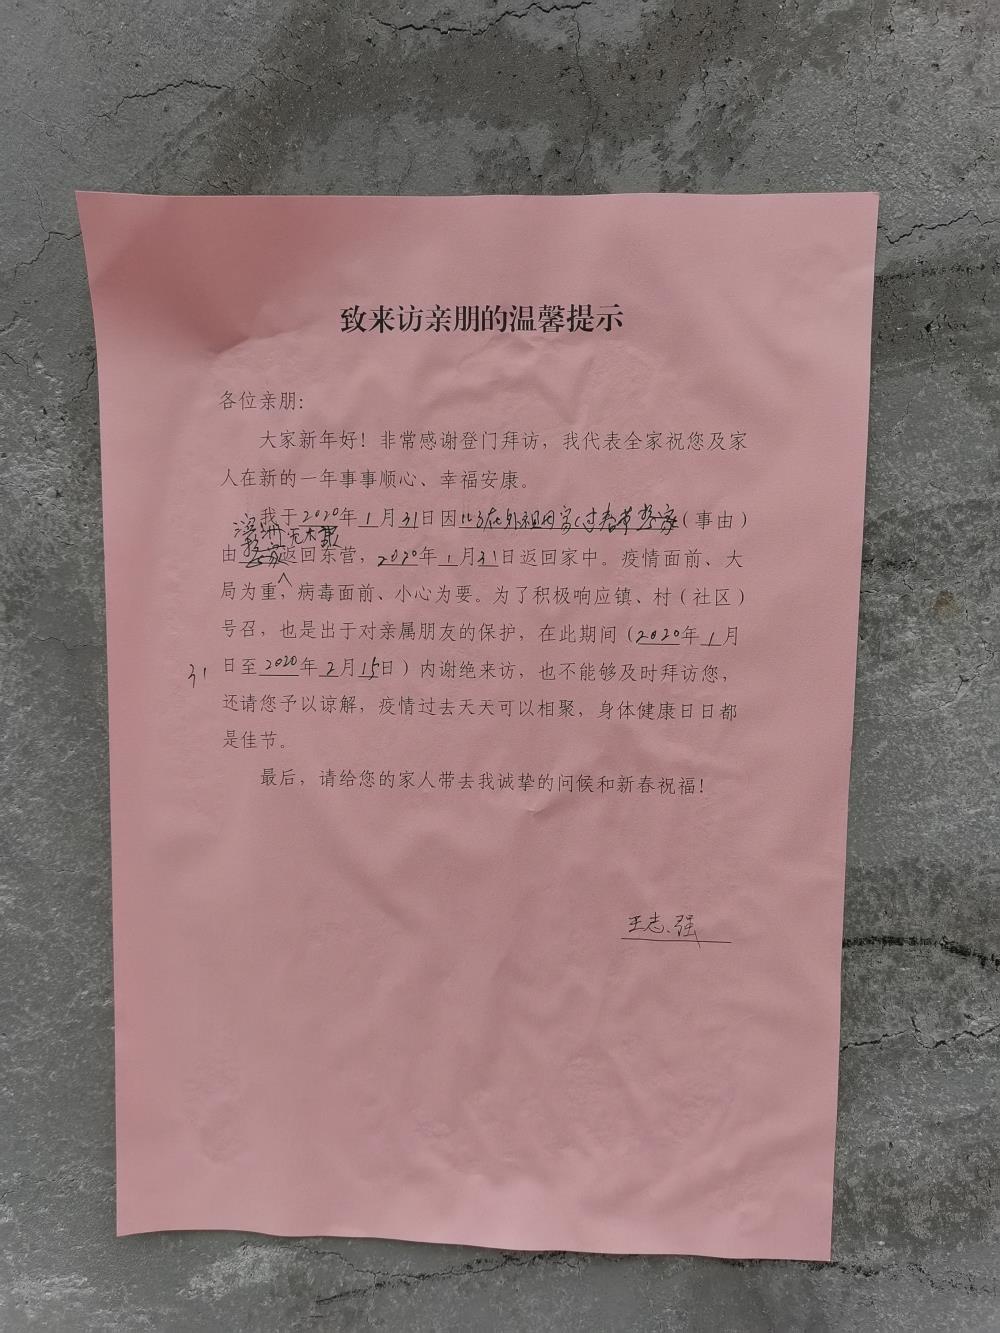 致来访亲朋的温馨提示
各位亲朋：
大家新年好！非常感谢登门拜访，我代表全家祝您及家
人在新的一年事事顺心、幸福安康。
我于2020年1月31日因（事由）
由返回东营，2020年1月31日返回家中。疫情面前、大
局为重，病毒面前、小心为要。为了积极响应镇、村（社区）
号召，也是出于对亲属朋友的保护，在此期间（2020年1月
31日至2020年2月15日）内谢绝来访，也不能够及时拜访您，
还请您予以谅解，疫情过去天天可以相聚，身体健康日日都
是佳节。
最后，请给您的家人带去我诚挚的问候和新春祝福！
王志强